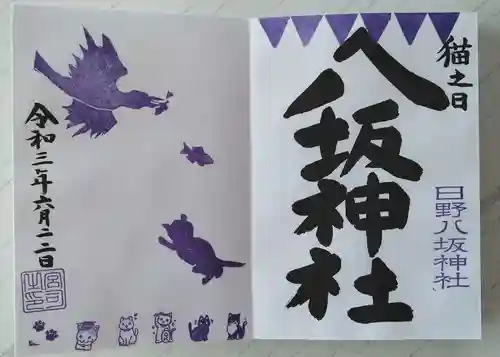 猫之日
八坂神社
日野八坂神社
令和三年六月二二日
宮司之印